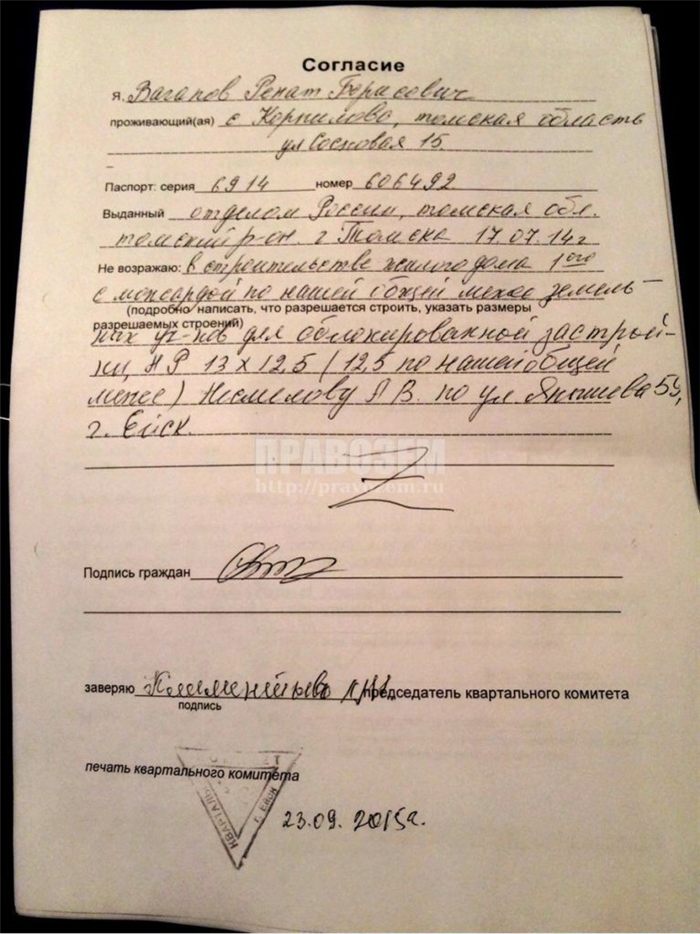 Согласие
Я, Вагапов Ренат Борисович
проживающий(ая) с Корнилово, томская область
ул Сосновая 15.
Паспорт: серия 6914 номер 606492
Выданный отделом России, томская обл.
томский р-он. г Томска 17.07.14г
Не возражаю: в строительстве жилого дома 1ого
с мансардой по нашей общей меже земель-
(подробно написать, что разрешается строить, указать размеры
разрешаемых строений)
ных уч-ков для облокированной застрой-
ки, НР 13 х 12,5 (12,5 по нашей общей
меже) Несмелову А В. по ул Янышева 59,
г. Ейск.
ПРАВОЗЕМ
http://pravozem.ru
Подпись граждан
заверяю Клементьева председатель квартального комитета
подпись
печать квартального комитета
КВАРТАЛЬ г. Ейск
23.09.2015г.